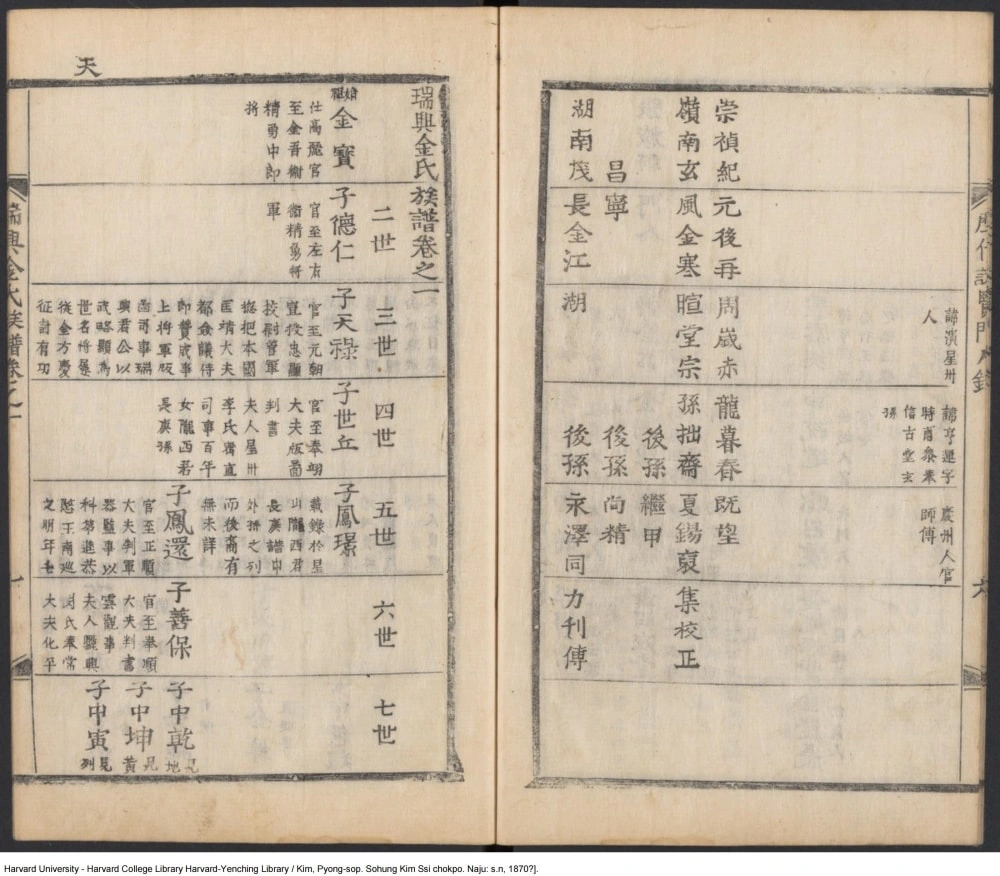 諱濱星州
人
慶州人官
師傅
崇禎紀元後再周歲赤龍暮春既望
嶺南玄風金寒暄堂宗孫拙齋夏錫裒集校正
後孫繼甲
昌寧 後孫尙精
湖南茂長金江湖 後孫永澤同力刊傳
天
瑞興金氏族譜卷之一
二世
三世
四世
五世
六世
七世
始祖
金寶
仕高麗官
至金吾衛
精勇中郎
將
子德仁
官至左右
衛精勇將
軍
子天祿
官至元朝
宣授忠顯
校尉管軍
摠把本國
匡靖大夫
都僉議侍
郎贊成事
上將軍版
圖司事瑞
興君公以
武略顯爲
世名將屢
從金方慶
征討有功
子世丘
官至奉翊
大夫版圖
判書
夫人星州
李氏膺直
司事百年
女隴西君
長庚孫
子鳳璟
載錄於星
山隴西君
長庚譜中
外孫之列
而後裔有
無未詳
子鳳還
官至正順
大夫判軍
器監事以
科第進恭
愍王南巡
之明年七
子善保
官至奉順
大夫判書
雲觀事
夫人驪興
閔氏奉常
大夫化平
子中乾
見地
子中坤
見黃
子中寅
見列
瑞興金氏族譜卷之一
一